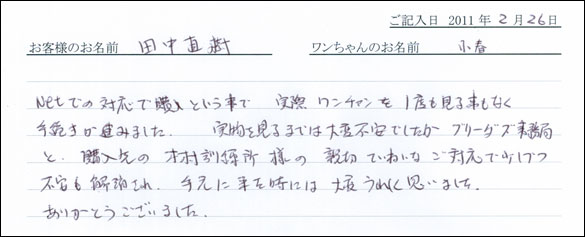 ご記入日 2011年2月26日
お客様のお名前 田中直樹 ワンちゃんのお名前 小春
Netでの対応で購入という事で 実際 ワンチャンを 1度も見る事もなく
手続きが進みました. 実物を見るまでは大変不安でしたが ブリーダーズ事務局
と. 購入先の 木村訓練所 様の 親切 ていねいな ご対応で少しづつ
不安も 解消され. 手元に来た時には 大変 うれしく思いました.
ありがとうございました.